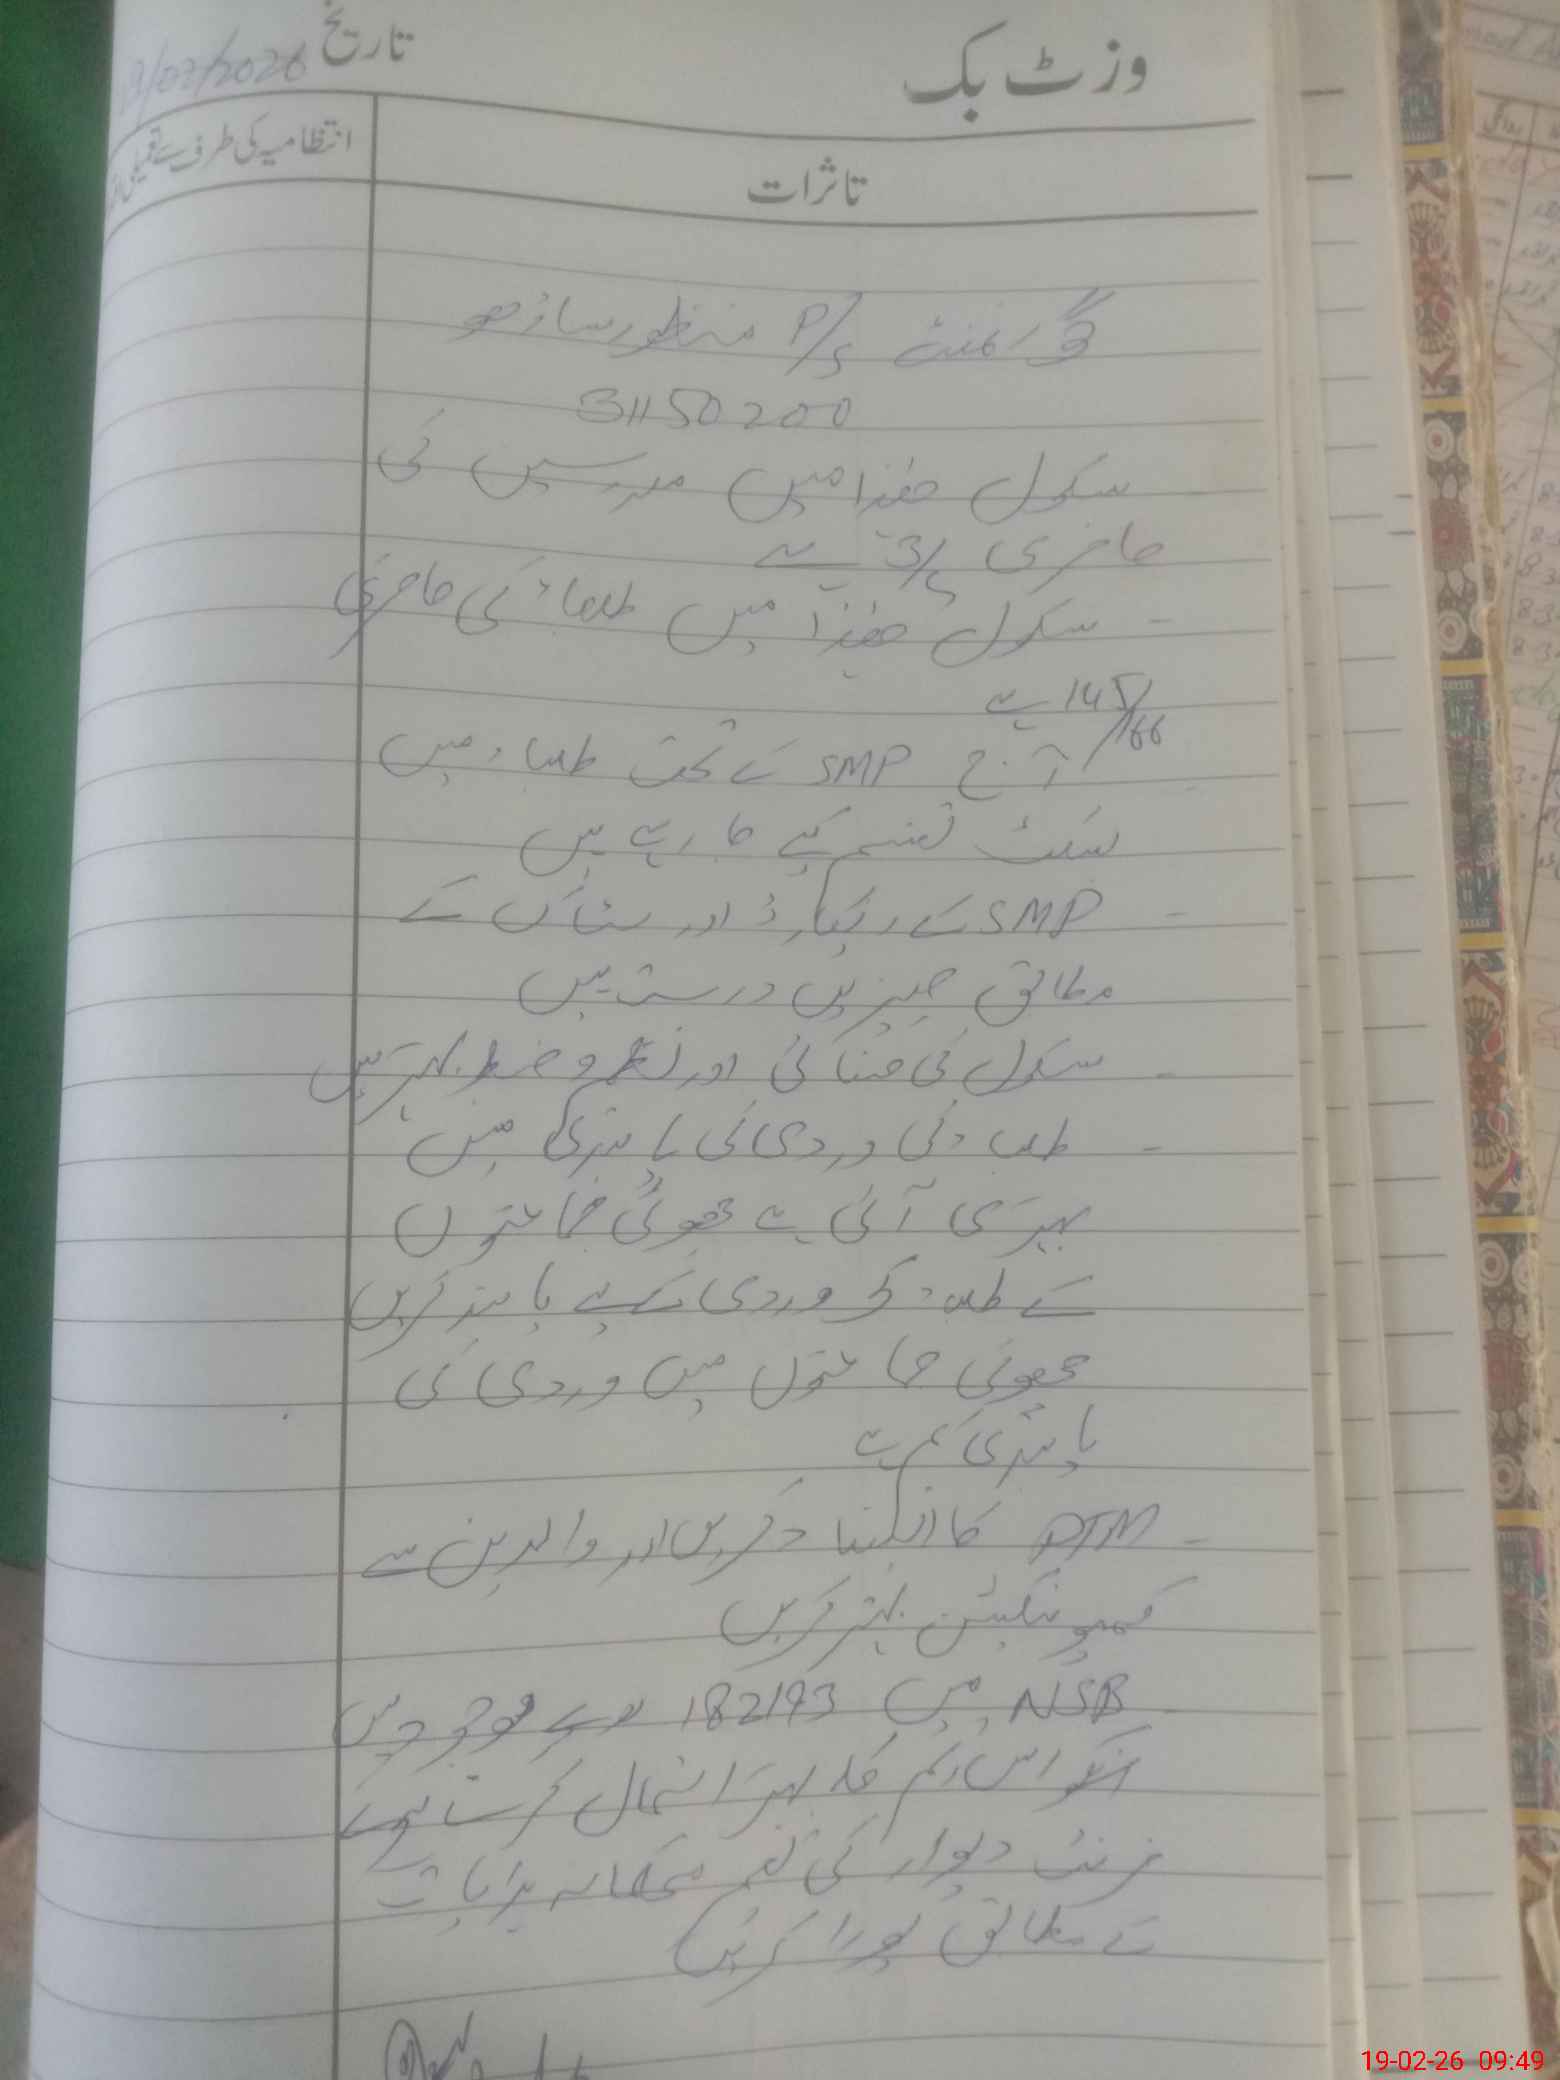 وزٹ بک
تاریخ 9/02/2026
تاثرات
انتظامیہ کی طرف سے تعمیلی
گورنمنٹ P/S منظور سانڑھو
31150200
سکول ھٰذا میں مدرسین کی
حاضری 3/ ہے
- سکول ھٰذا میں طلباء کی حاضری
145/166 ہے
آج SMP کے تحت طلباء میں
بسکٹ تقسیم کیے جا رہے ہیں
- SMP کے ریکارڈ اور سٹاک کے
مطابق چیزیں درست ہیں
- سکول کی صفائی اور نظم و ضبط بہتر ہیں
- طلباء کی وردی کی پابندی میں
بہتری آئی ہے چھوٹی جماعتوں
کے طلباء کو وردی کے لیے پابند کریں
چھوٹی جماعتوں میں وردی کی
پابندی کم ہے
- PTM کا انعقاد کریں اور والدین سے
کمیونیکیشن بہتر کریں
NSB میں 182193 روپے موجود ہیں
اس رقم کا بہتر استعمال کرتے ہوئے
فرنٹ دیوار کی تھیم محکمانہ ہدایات
کے مطابق پورا کریں
19-02-26 09:49